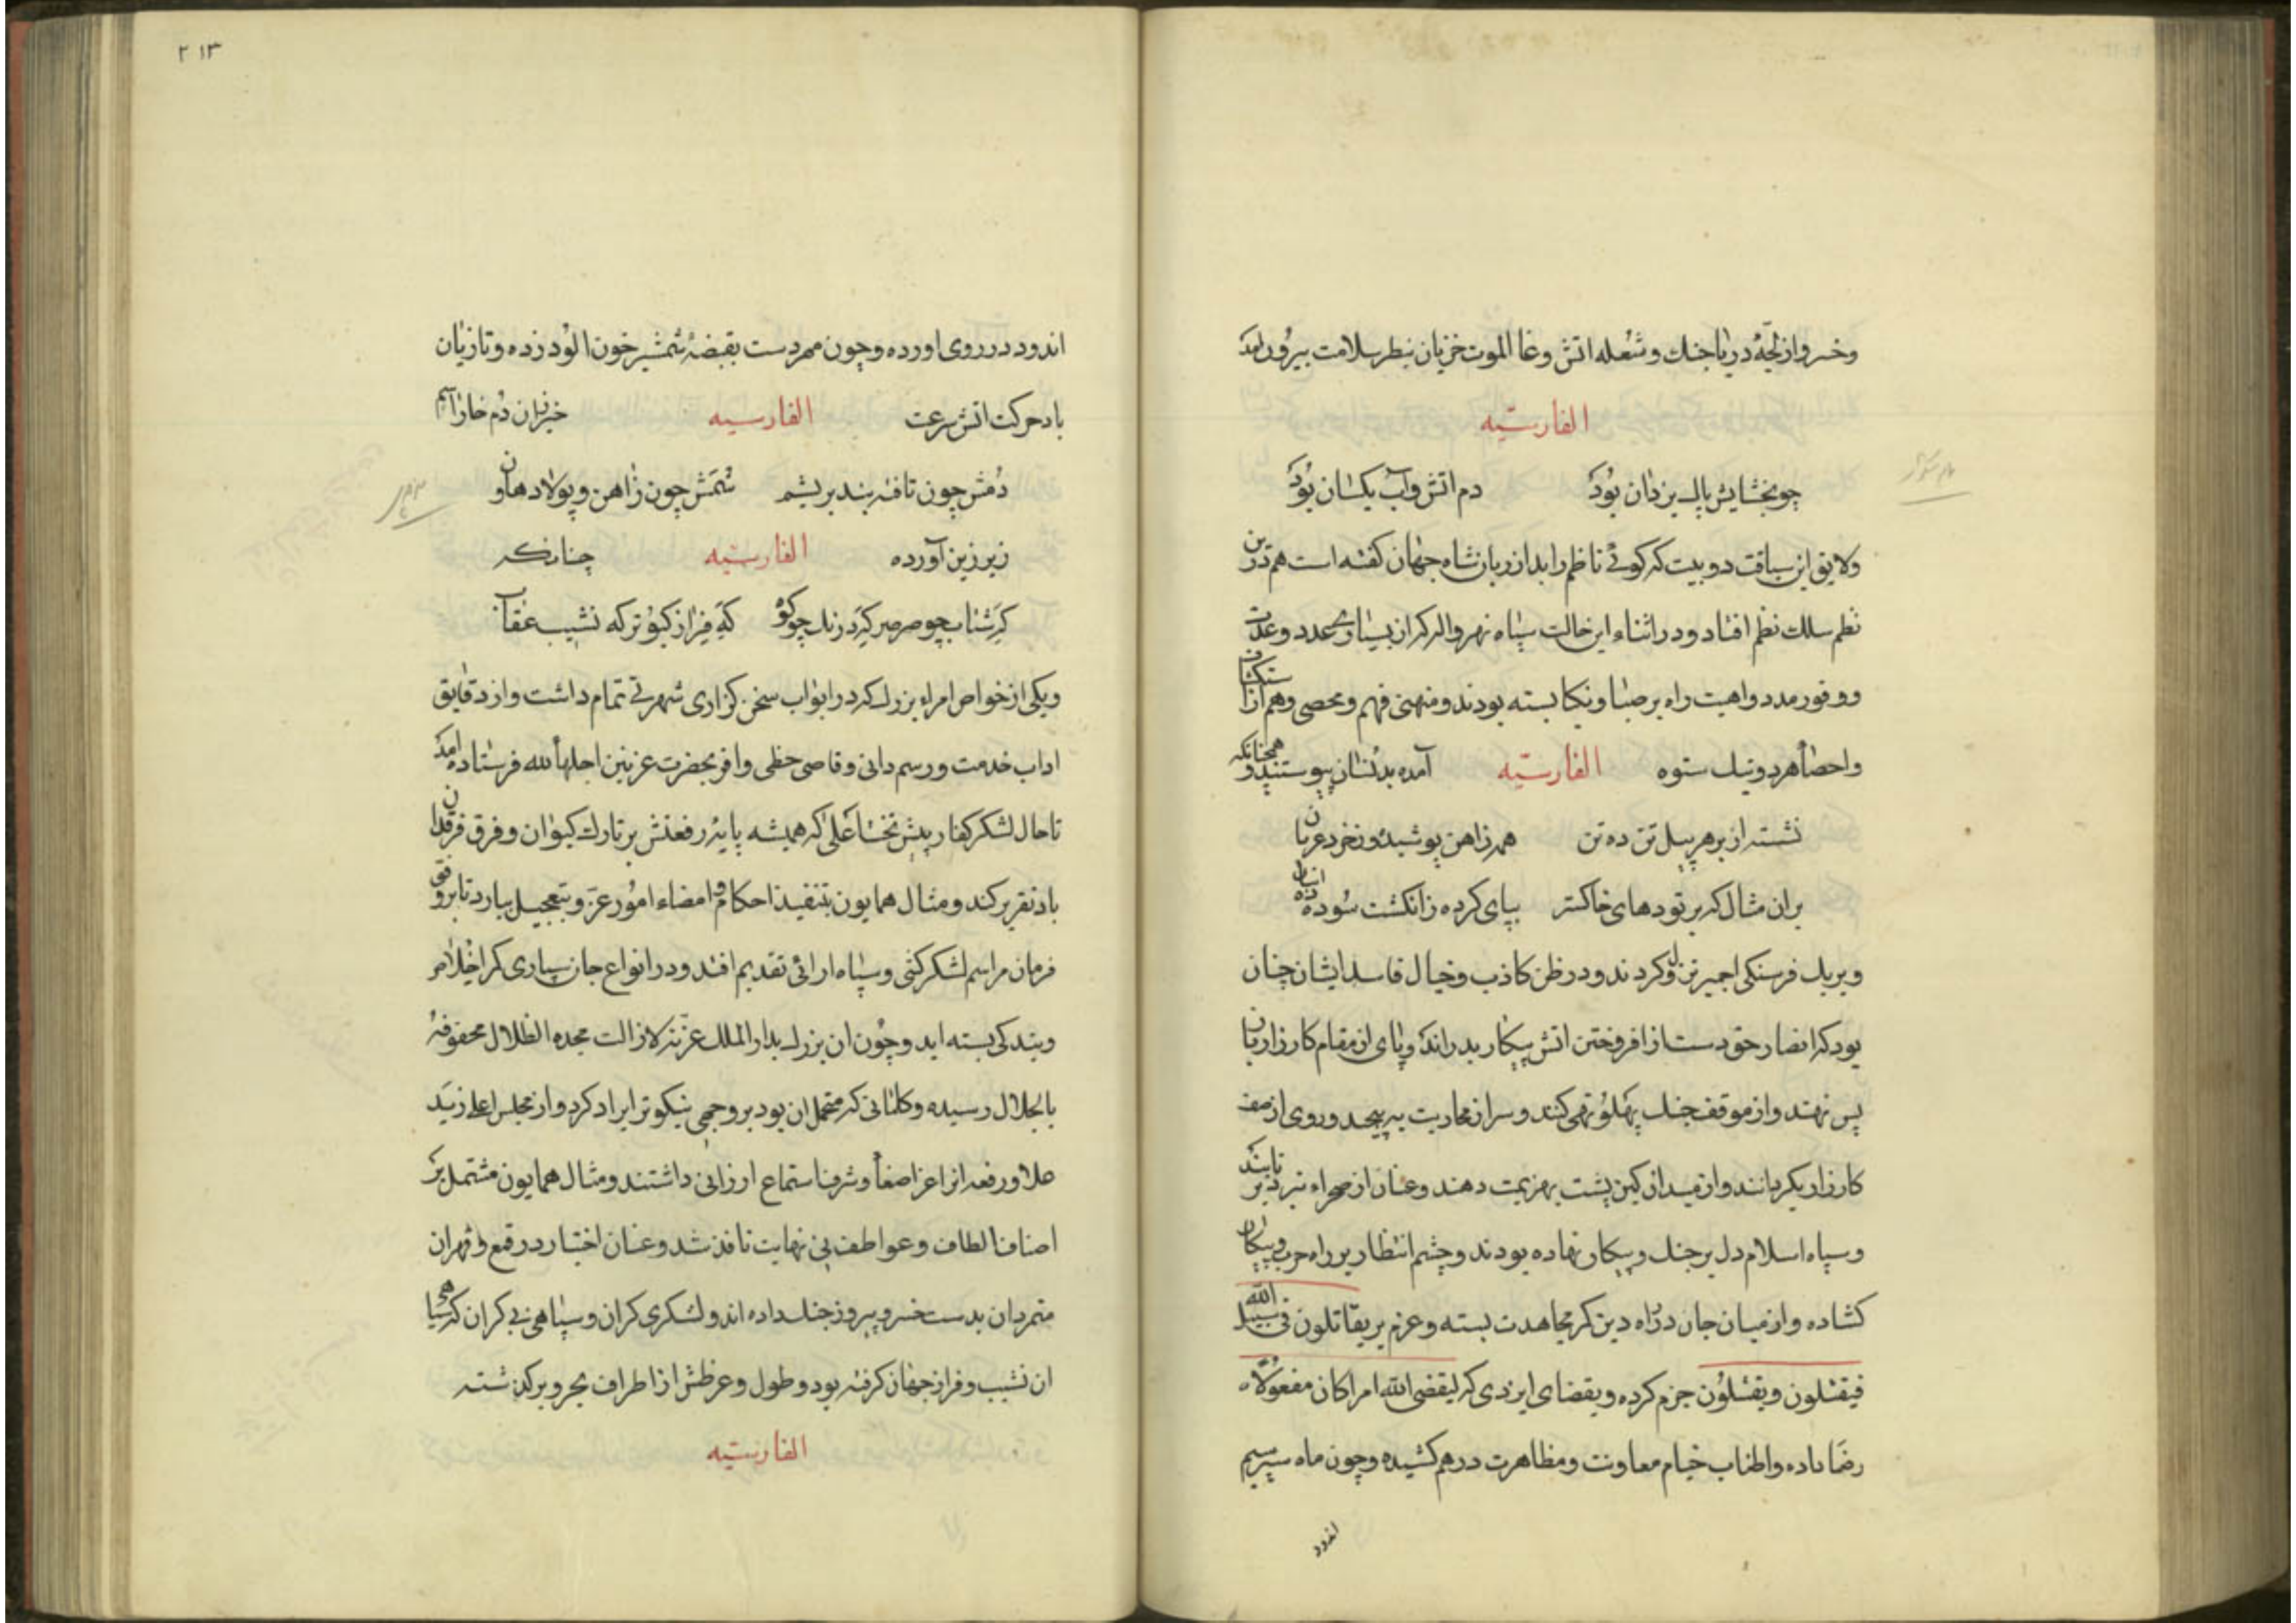 وخسرو از لجّهٔ دریا جنك و شعله اتش وغا الموت خزیان بنظر سلامت بیرون امد
الفارسّیه
چو بخشایش پاك یزدان بُوَد دم اتش و آب یکسان بُوَد
ولایق این سیاقت دو بیت که کوئی ناظم را بدان زبان شاه جهان کفته است هم درین
نظم سلك نظم افتاد و در اثناء این حالت سپاه نهرواله که از بسیاری عدد و عدّت
و وفور مدد و اهبت راه بر صبا و نکبا بسته بودند و منهئ فهم و محصی وهم از استکشاف
و احصاء هر دو نیك ستوه الفارسّیه آمده بدیشان پیوستند و همچنانکه
نشسته از بر هر پیل تن ده تن همه زاهن پوشیده و ز خرد عریان
بران مثال که بر تودهای خاکستر بپای کرده ز انکشت سُوده انسان
و بر یك فرسنکی اجمیر نزول کردند و در ظن کاذب و خیال فاسد ایشان چنان
بود که انصار حق دست از افروختن اتش پیکار بدارند و پای از مقام کارزار باز
پس نهند و از موقف جنك پهلُو تهی کنند و سر از محاربت بپیچند و روی از صف
کارزار بکردانند و از میدان کین پشت بهزیمت دهند و عنان از صحراء نبرد برتابند
و سپاه اسلام دل بر جنك و پیکار نهاده بودند و چشم انتظار بر راه حرب و پیکار
کشاده و از میان جان در راه دین کمر مجاهدت بسته و عزم بر یقاتلون فی سبیل الله
فیقتلون و یقتلون جزم کرده و بقضای ایزدی که لیقضی الله امرا کان مفعولاه
رضا داده و اطناب خیام معاونت و مظاهرت در هم کشیده و چون ماه سپر سیم
اندود
۲۱۳
اندود در روی اورده و چون مهر دست بقبضهٔ شمشیر خون الُود زده و تازیان
باد حرکت اتش سرعت الفارسیه خیزران دُم خارا سم
دُمش چون تافته بند بریشم سُمَش چون زاهن و پولاد هاون
زیر زین آورده الفارسّیه چنانکه
که شتاب چو صرصر که درنك چو کوه که فراز کبوتر که نشیب عقاب
و یکی از خواص امراء بزرك که در ابواب سخن کزاری شهرتی تمام داشت و از دقایق
اداب خدمت و رسم دانی و قاصی حظی وافر بحضرت عزنین اجلها الله فرستاده امد
تا حال لشکر کفار پیش تخت اعلی که همیشه پایهٔ رفعتش بر تارك کیوان و فرق فرقدان
باد تقریر کند و مثال همایون بتنفیذ احکام و امضاء امُور عزّ و تبجیل بیارد تا بر وفق
فرمان مراسم لشکر کشی و سپاه ارائی تقدیم افتد و در انواع جان سپاری کمر اخلاص
و بندکی بسته اید و چون ان بزرك بدار الملك عزنه لا زالت مجده الظلال محفوفهٔ
بالجلال رسیده و کلماتی که متحمل ان بود بر وجهی نیکوتر ایراد کرد و از مجلس اعلی زیَد
علا و رفعه انرا عز اصغا و شرف استماع ارزانی داشتند و مثال همایون مشتمل بر
اصناف الطاف و عواطف بی نهایت نافذ شد و عنان اختیار در قمع و قهر ان
متمردان بدست خسرو پیروز جنك داده اند و لشکری کران و سپاهی بی کران که سیاهی
ان نشیب و فراز جهان کرفته بود و طول و عرضش از اطراف بحر و بر کذشته
الفارسّیه